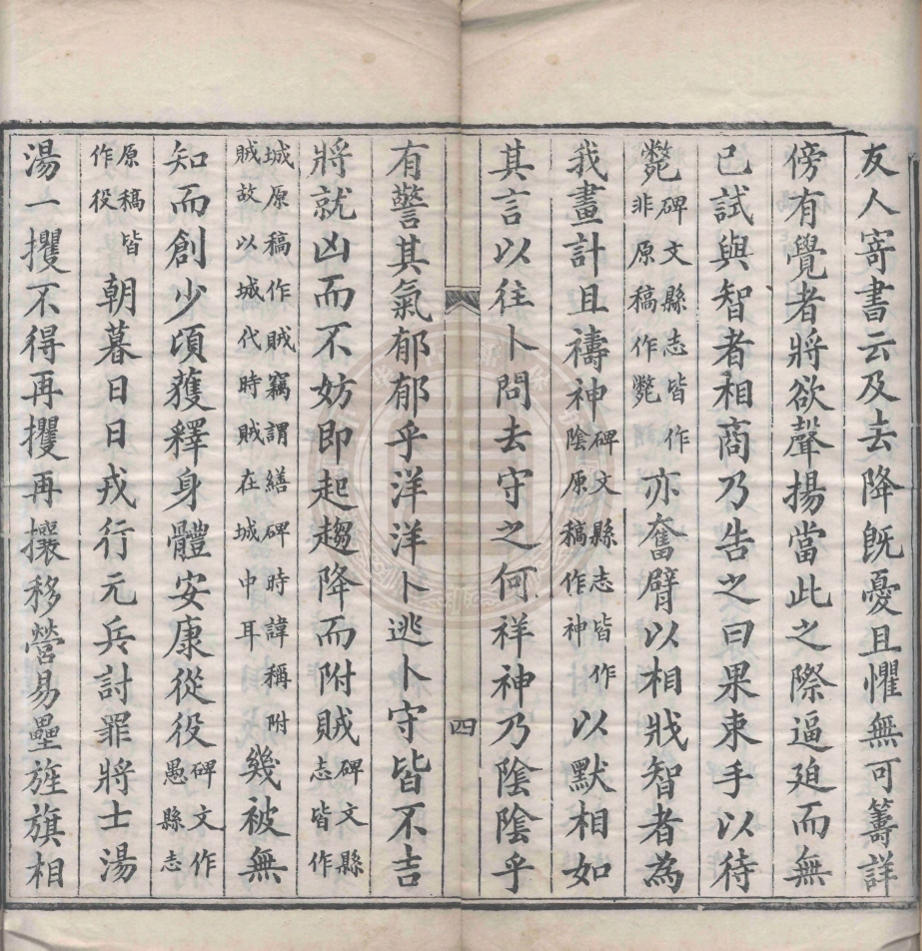 友人寄書云及去降既憂且懼無可籌詳
傍有覺者將欲聲揚當此之際逼廹而無
已試與智者相商乃告之曰果束手以待
斃碑文縣志皆作非原稿作斃亦奮臂以相戕智者為
我畫計且禱神碑文縣志皆作陰原稿作神以默相如
其言以往卜問去守之何祥神乃陰陰乎
四
有警其氣郁郁乎洋洋卜逃卜守皆不吉
將就凶而不妨即起趨降而附賊碑文縣志皆作
城原稿作賊竊謂繕碑時諱稱附賊故以城代時賊在城中耳幾被無
知而創少頃獲釋身體安康從役碑文作愚縣志
原稿皆作役朝暮日日戎行元兵討罪將士湯
湯一攫不得再攫再攘移營易壘旌旗相